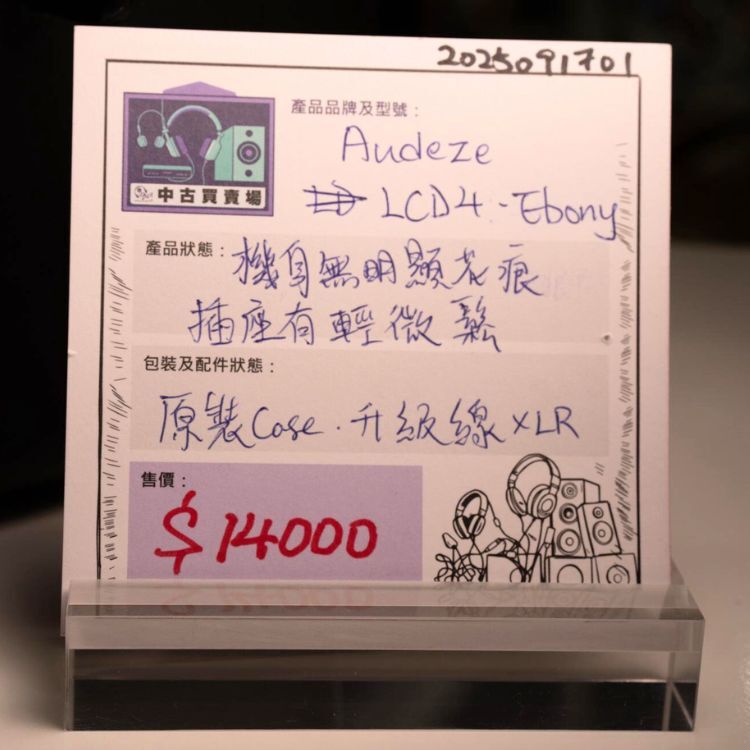 2025091701
產品品牌及型號：
Audeze
LCD4 - Ebony
中古買賣場
產品狀態：
機身無明顯花痕
插座有輕微鬆
包裝及配件狀態：
原裝Case．升級線XLR
售價：
$14000